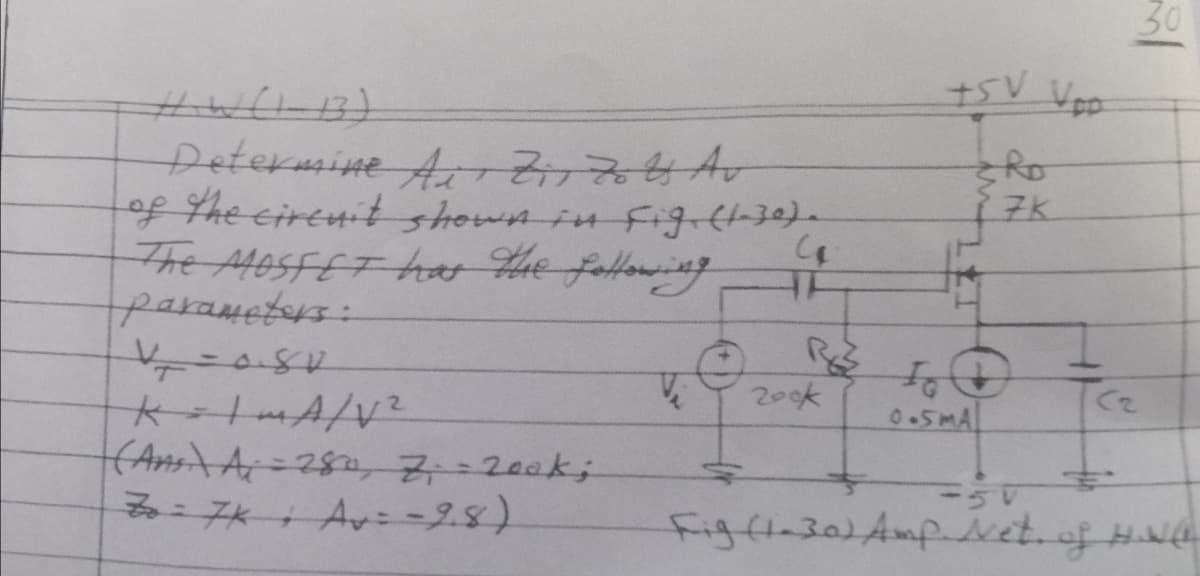 30
H.W(1-13)
Determine Ai, Zi, Zo & Av
of the circuit shown in Fig. (1-30).
The MOSFET has the following
parameters:
VT = 0.8V
K = 1 mA/V²
(Ans.\ Ai = 280, Zi = 200k;
Zo = 7k ; Av = -9.8)
+5V VDD
RD
7K
C1
RG
200k
Vi
IQ
0.5mA
C2
-5V
Fig (1-30) Amp. Net. of H.W(1